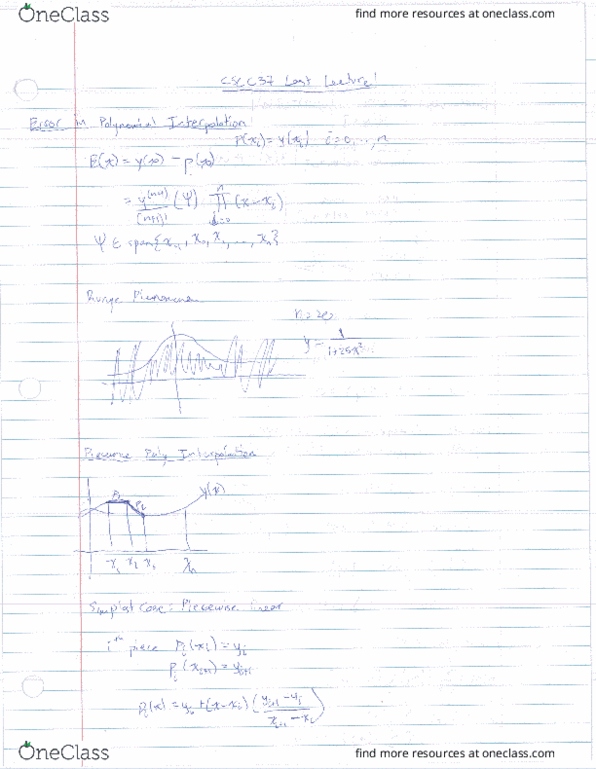 OneClass
find more resources at oneclass.com
CSCC37 Last Lecture!
Error in Polynomial Interpolation
P(xi) = y(xi) i=0,...,n
E(x) = y(x) - p(x)
= y^(n+1)/(n+1)! (Ψ) ∏ i=0 n (x-xi)
Ψ ∈ span{x, x0, x1, ..., xn}
Runge Phenomenon
n=20
y = 1/(1+25x²)
Piecewise Poly Interpolation
P1 P2 y(x)
xn
Simplest Case: Piecewise linear
i^th piece Pi(xi) = yi
Pi(xi+1) = yi+1
Pi(x) = yi + (x-xi) ((yi+1 - yi)/(xi+1 - xi))
OneClass
find more resources at oneclass.com